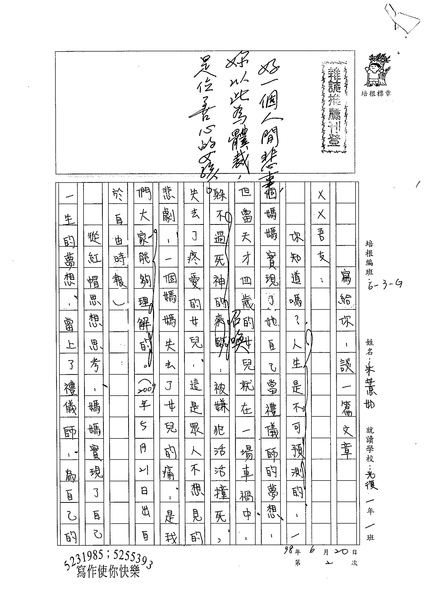 培根標章
雜誌推薦刊登
好一個人間悲事，
妳以此為體裁，
是位善心的女孩
培根編班 6-3-G
姓名：
就讀學校： 一年一班
98年6月20日
第2次
寫給你，談一篇文章
XX吾友：
你知道嗎？人生是不可預測的，一
個媽媽實現了她自己當禮儀師的夢想，
但當天才四歲的女兒就在一場車禍中，
躲不過死神的召喚，被嫌犯活活撞死，
失去了疼愛的女兒，這是眾人不想見的
悲劇，一個媽媽失去了女兒的痛，是我
們大家能夠理解的。（2009年5月21日出自
於自由時報）
從紅帽思想思考，媽媽實現了自己
一生的夢想，當上了禮儀師，為自己的
5231985；5255393
寫作使你快樂